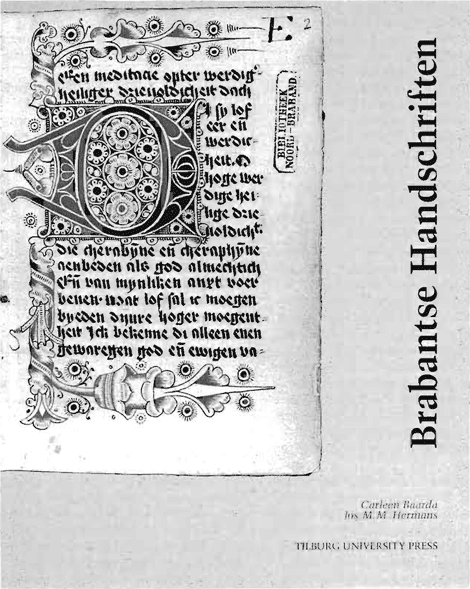 E: 2
eren meditacie opter werdig
heiliger drieuoldicheit dach
BIBLIOTHEEK
NOORD-BRABAND.
O
sy lof
eer eñ
werdic
heit. O
hoge wer
dige hei
lige drie
uoldicht
die cherubyne eñ cheraphyne
aenbeden als god almechtich
Eñ van mynliken anxt voer
beuen. Wat lof sal ic moegen
byeden dynre hoger moegent
heit Ick bekenne di alleen enen
gewaregen god eñ ewigen va
Brabantse Handschriften
Carleen Baarda
Jos M.M. Hermans
TILBURG UNIVERSITY PRESS